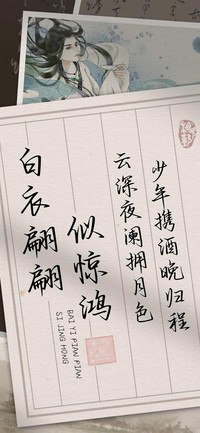 少年携酒晚归程
云深夜阑拥月色
似惊鸿
白衣翩翩
BAI YI PIAN PIAN
SI JING HONG